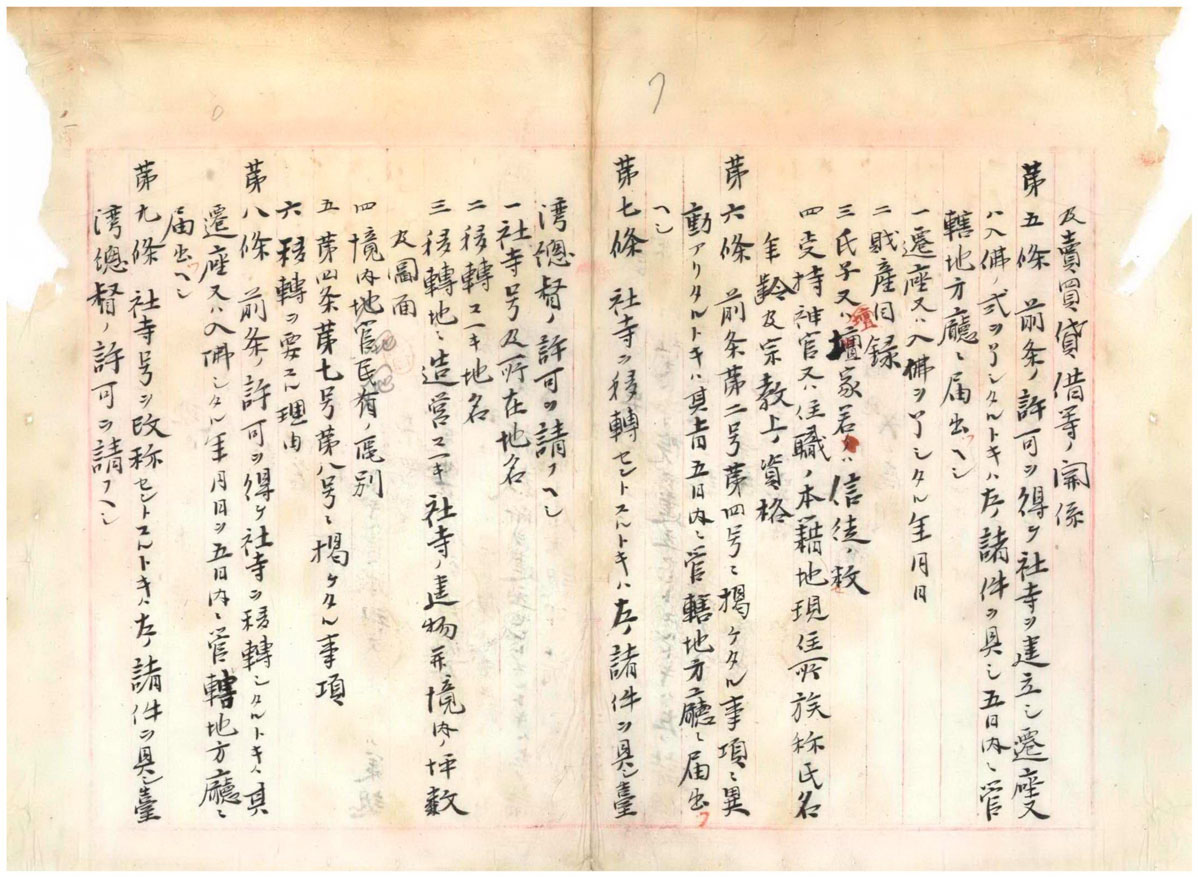 及賣買貸借等ノ関係
第五條　前条ノ許可ヲ得テ社寺ヲ建立シ遷座又
ハ入佛ノ式ヲ了シタルトキハ左ノ諸件ヲ具シ五日内ニ管
轄地方廳ニ届出ヘシ
一遷座又ハ入佛ヲ了シタル年月日
二財産目録
三氏子又ハ檀家若クハ信徒ノ数
四支持神官又ハ住職ノ本籍地現住所族称氏名
年齢及宗教上ノ資格
第六條　前条第二号第四号ニ掲ケタル事項ニ異
動アリタルトキハ其都度五日内ニ管轄地方廳ニ届出
ヘシ
第七條　社寺ヲ移轉セントスルトキハ左ノ諸件ヲ具シ臺
湾總督ノ許可ヲ請フヘシ
一社寺号及所在地名
二移轉スヘキ地名
三移轉地ニ造営スヘキ社寺ノ建物并境内ノ坪数
及圖面
四境内地官民有ノ區別
五第四条第七号第八号ニ掲ケタル事項
六移轉ヲ要スル理由
第八條　前条ノ許可ヲ得テ社寺ヲ移轉シタルトキハ其
遷座又ハ入佛シタル年月日ヲ五日内ニ管轄地方廳ニ
届出ヘシ
第九條　社寺号ヲ改称セントスルトキハ左ノ諸件ヲ具シ臺
湾總督ノ許可ヲ請フヘシ